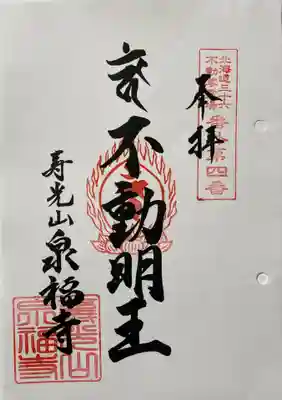 北海道三十六
不動尊霊場
第四番
奉拝
不動明王
寿光山泉福寺
壽光山
泉福寺